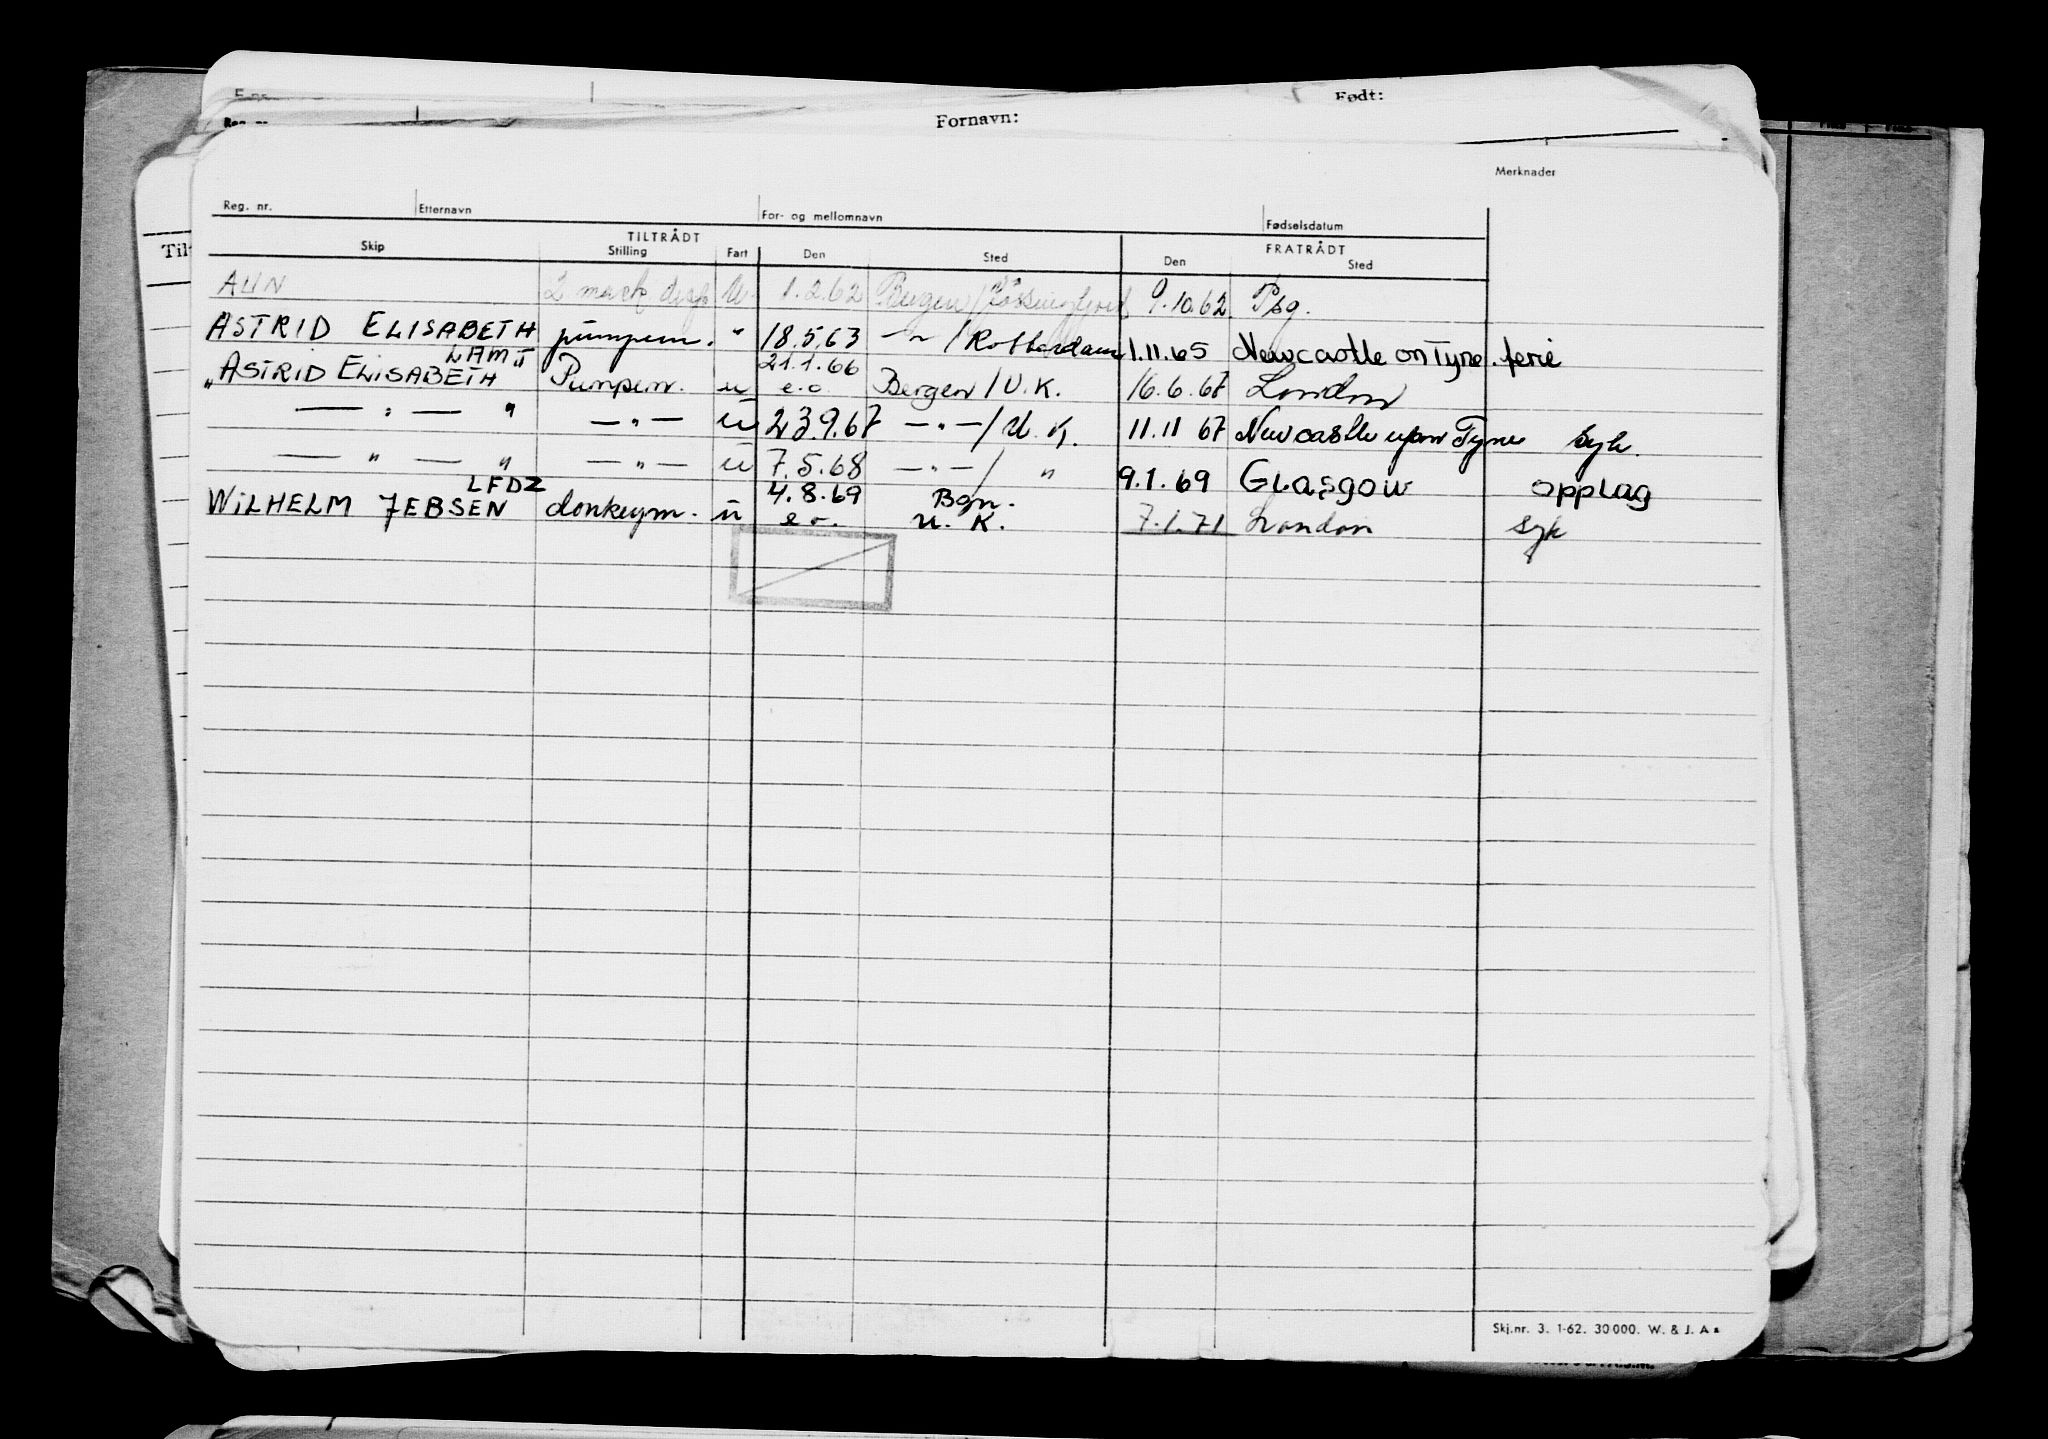 Født:
Fornavn:
Merknader
Reg. nr. Etternavn For- og mellomnavn Fødselsdatum
TILTRÅDT FRATRÅDT
Skip Stilling Fart Den Sted Den Sted
AUN 2 mask U. 1.2.62 Bergen / Jøssingfjord 9.10.62 Psg.
ASTRID ELISABETH pumpem. " 18.5.63 — " / Rotterdam 1.11.65 Newcastle on Tyne. ferie
LAMI 21.1.66
" ASTRID ELISABETH " Pumpem. u e.o. Bergen / U.K. 16.6.67 London
— " — " — " — u 23.9.67 — " — / U.K. 11.11 67 Newcastle upon Tyne syk.
— " — " — " — u 7.5.68 — " — / " 9.1.69 GLASGOW opplag
LFDZ 4.8.69 Bgn.
WILHELM JEBSEN donkeym. u e.o. U.K. 7.1.71 London syk
Skj.nr. 3. 1-62. 30000. W. & J. A s